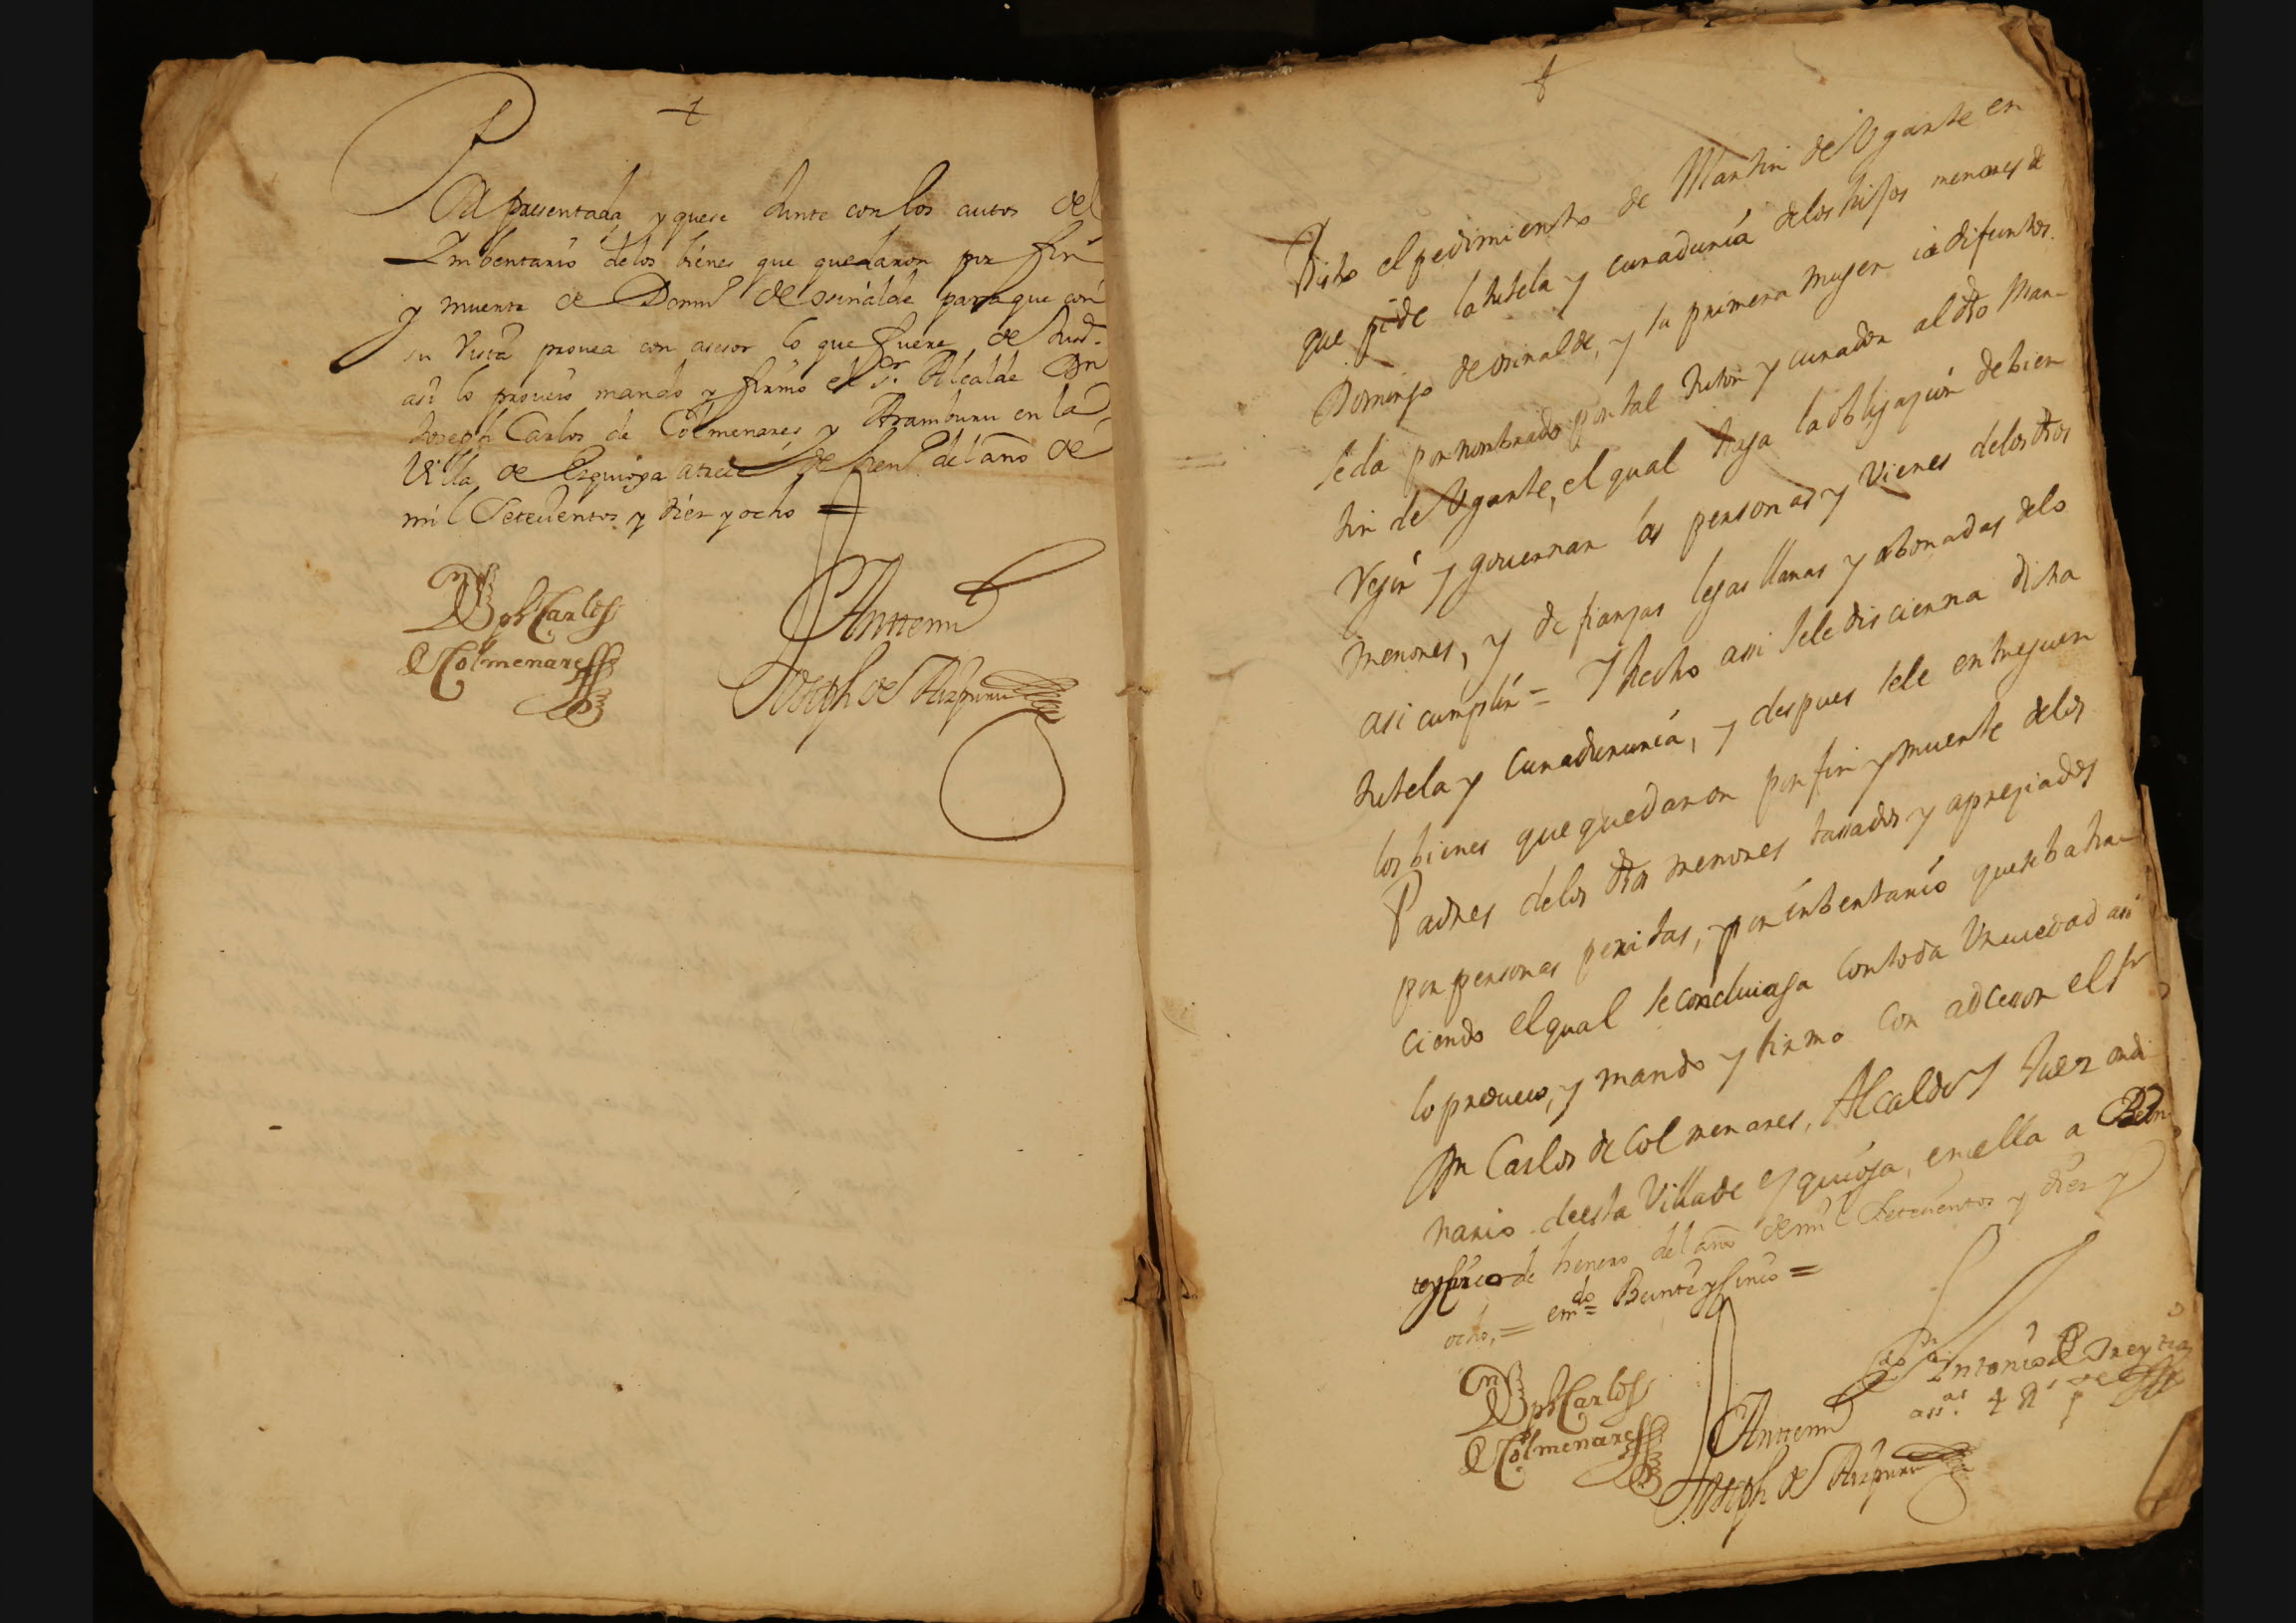 Por presentada y que se Junte con los autos del
Imbentario delos bienes que quedaron por fin
y muerte de Domº deosinalde para que con
su Vista prouea con asesor lo que fuere de Jusdª
asi lo proueio mando y firmo el Sr. Alcalde Dn
Joseph Carlos de Colmenares y Aramburu en la
Villa de Ezquioga a trece de henº del año de
mil Setecientos y diez y ocho =
Dn Jph Carlos
de Colmenares
Anttemi
Joseph de Aizpuru
Visto el pedimiento de Martin de Vgarte en
que pide la tutela y curaduria delos hijos menores de
Domingo deosinalde, y su primera muger ia difuntos.
se da por nombrado por tal tutor y curador al dho Mar-
tin de Vgarte, el qual haga la obligaçion de bien
Regir y gouernar las personas y Vienes delos dhos
menores, y de fianças legas llanas y abonadas delo
asi cumplir = I hecho assi se le discierna dicha
tutela y curadururia, y despues se le entreguen
los bienes que quedaron por fin y muerte delos
Padres delos dhos menores tassados y apreçiados
por personas peritas, y por inbentario que se ba ha-
ciendo el qual se concluiaga con toda Vreuedad assi
lo proueio, y mando y firmo con adcesor el sr
Dn Carlos de Colmenares, Alcalde y Juez ordi-
nario deesta Villa de esquioga, en ella a Bein-
te y sinco de henero del año de mil Setecientos y diez y
ocho, = emdo = Beinte y sinco =
Dn Jph Carlos
de Colmenares
Anttemi
Joseph de Aizpuru
Antonio de
assª. 4 Rs